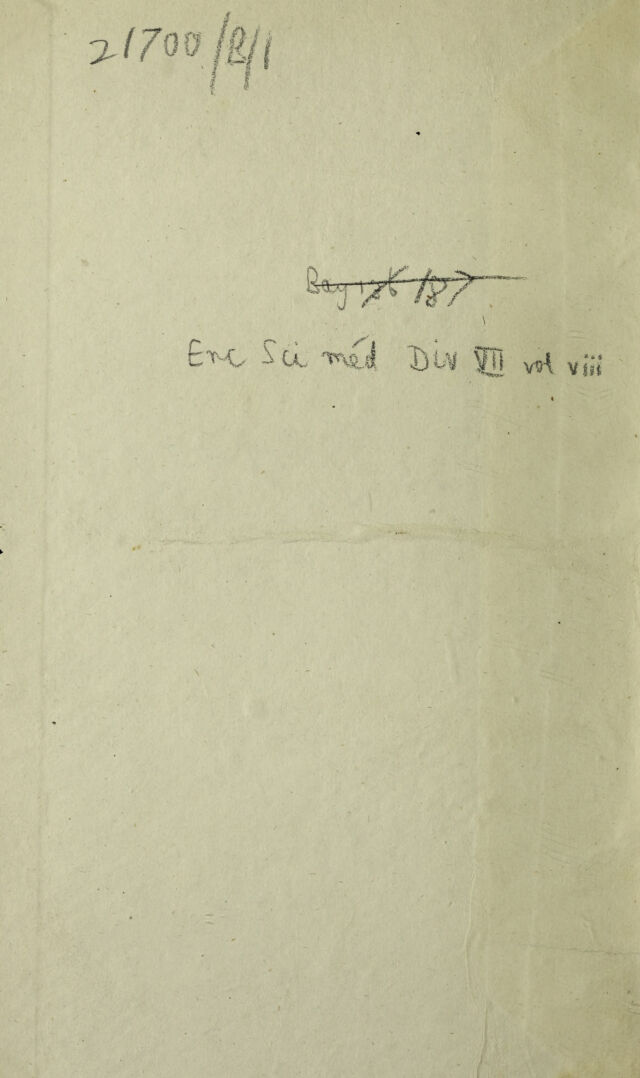 21700/B/1
Bay
Enc Sci méd Div VII vol viii